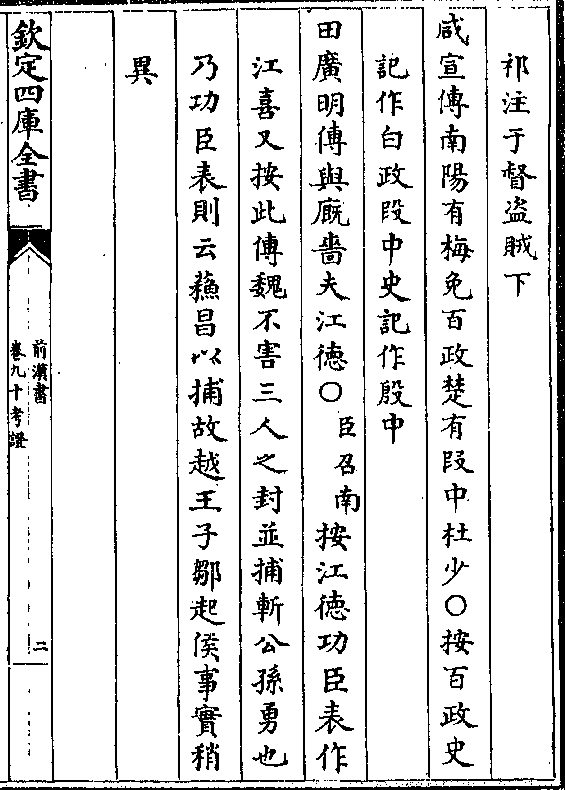 祁注于督盗賊下
咸宣傳南陽有梅免百政楚有段中杜少○按百政史
記作白政段中史記作殷中
田廣明傳與厩嗇夫江徳○臣召南按江徳功臣表作
江喜又按此傳魏不害三人之封並捕斬公孫勇也
乃功臣表則云蘓昌以捕故越王子鄒起侯事實稍
異
欽定四庫全書
前漢書
卷九十考證
二